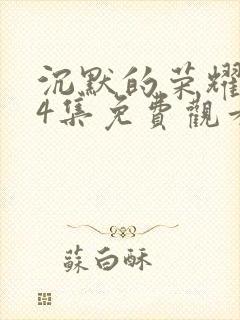 沉默的荣耀
4集免費觀
蘇白酥